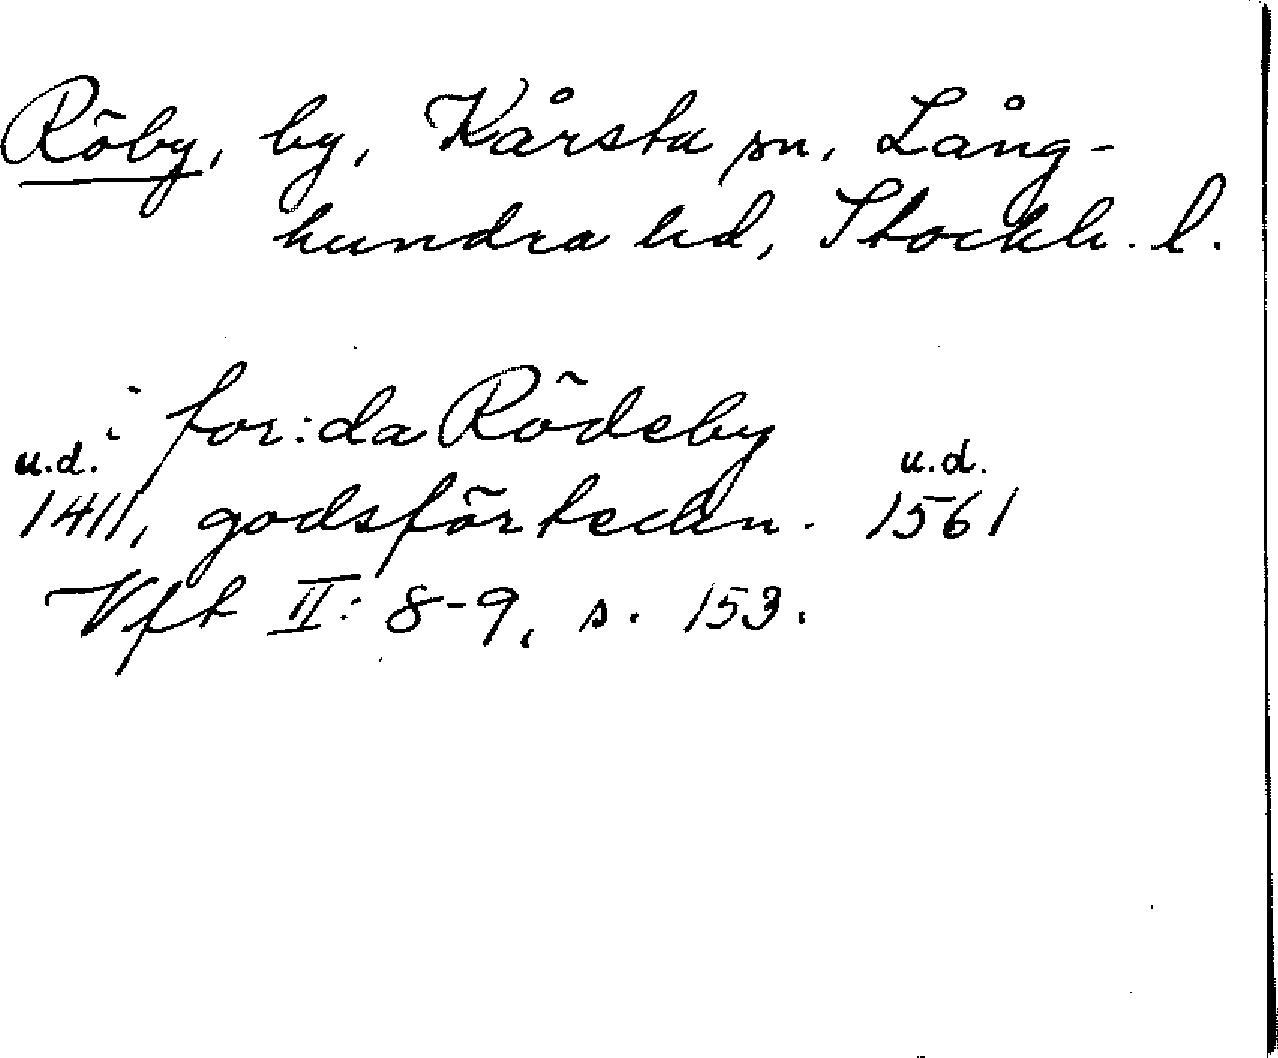 Röby, by, Kårsta sn, Lång-
hundra hd, Stockh. l.
i for:da Rödeby
u.d. u.d.
1411, godsförteckn. 1561
Vft II: 8-9, s. 153.